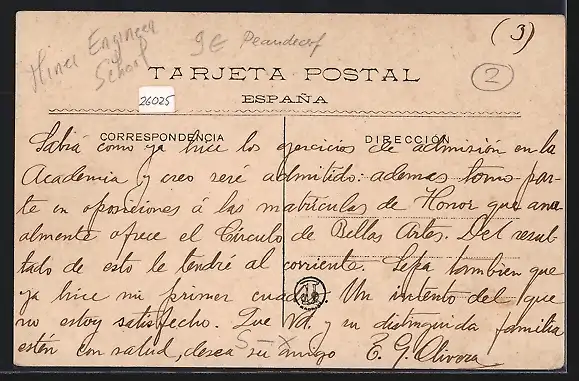 Mines Engineer
School
9€
(3)
2
TARJETA POSTAL
ESPAÑA
26025
CORRESPONDENCIA
DIRECCIÓN
Sabrá como ya hice los ejercicios de admisión en la
Academia y creo seré admitido: ademas tomo par-
te en oposiciones á las matrículas de Honor que anu-
almente ofrece el Círculo de Bellas Artes. Del resul-
tado de esto le tendré al corriente. Sepa tambien que
ya hice mi primer cuadro. Un intento del que
no estoy satisfecho. Que Vd. y su distinguida familia
estén con salud, desea su amigo E. G. Olivera
5-X